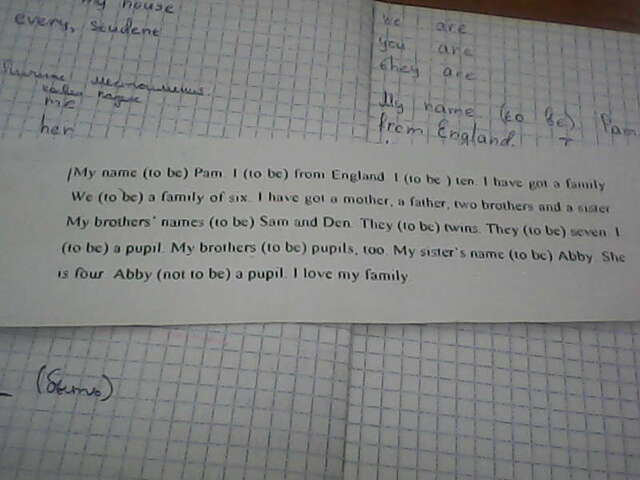 my house
every, student
me
her
We are
you are
they are
My name (to be) Pam
from England. I
My name (to be) Pam. I (to be) from England. I (to be ) ten. I have got a family
We (to be) a family of six. I have got a mother, a father, two brothers and a sister
My brothers' names (to be) Sam and Den. They (to be) twins. They (to be) seven. I
(to be) a pupil. My brothers (to be) pupils, too. My sister's name (to be) Abby. She
is four. Abby (not to be) a pupil. I love my family